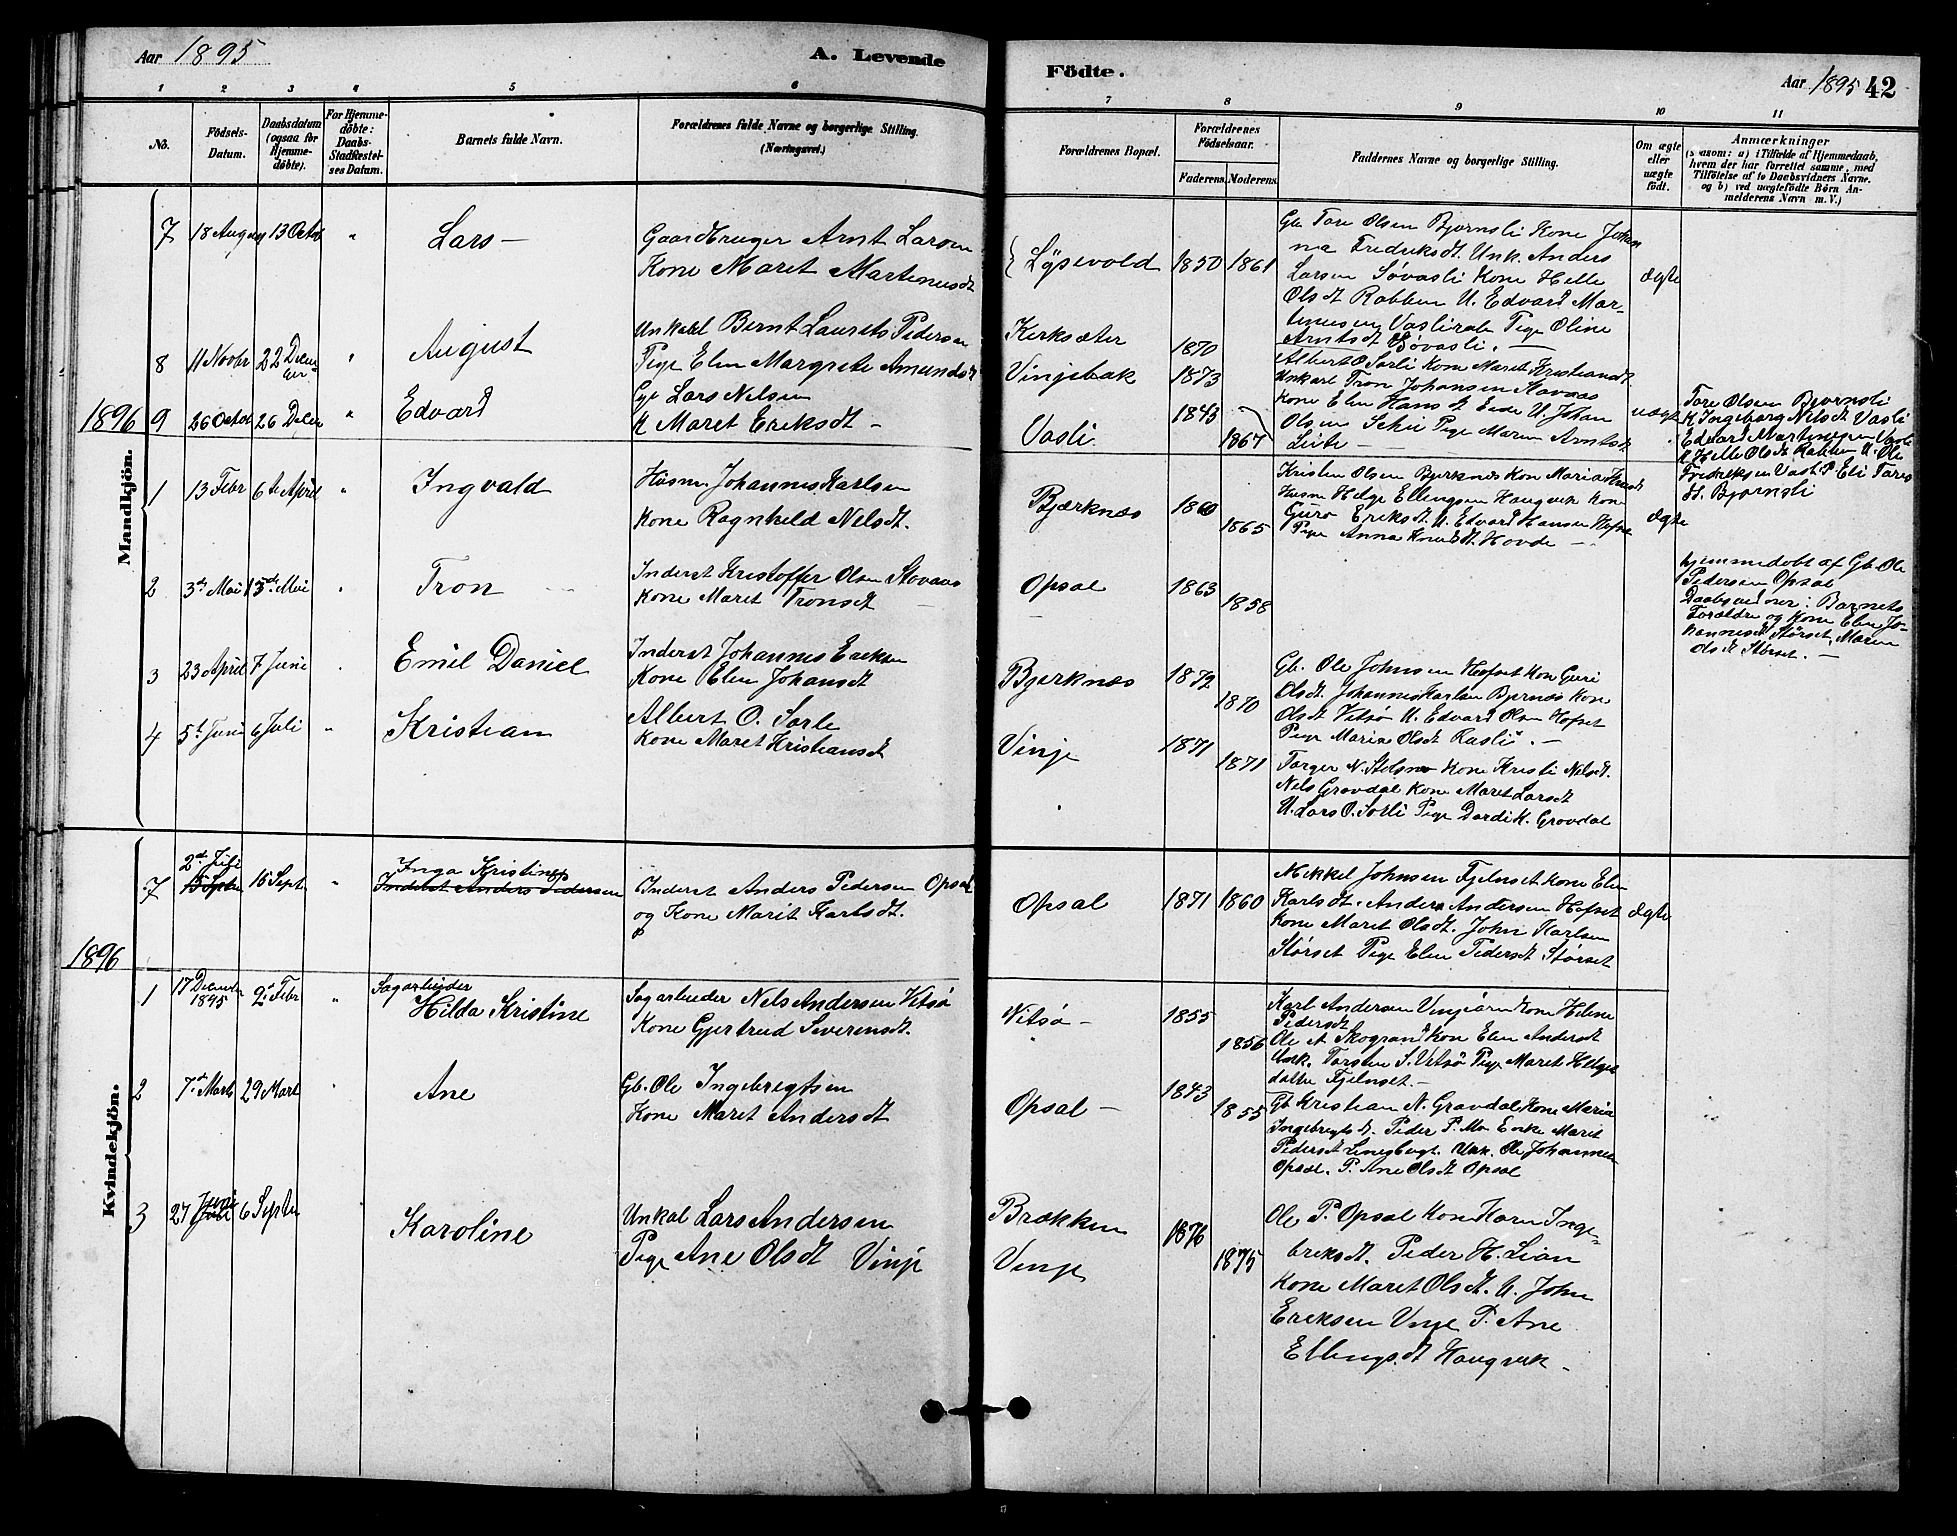 Aar 1895
A. Levende
Födte.
Aar 1895 42
1 2 3 4 5 6 7 8 9 10 11
No.
Födsels-
Datum.
Daabsdatum
(ogsaa for
Hjemme-
döbte).
For Hjemme-
döbte:
Daabs-
Stadfæstel-
ses Datum.
Barnets fulde Navn.
Forældrenes fulde Navne og borgerlige Stilling.
(Næringsvei.)
Forældrenes Bopæl.
Forældrenes
Födselsaar.
Faderens. Moderens.
Faddernes Navne og borgerlige Stilling.
Om ægte
eller
uægte
födt.
Anmærkninger
(saasom: a) i Tilfælde af Hjemmedaab,
hvem der har forrettet samme, med
Tilföielse af to Daabsvidners Navne.
og b) ved uægtefödte Börn An-
melderens Navn m. V.)
Mandkjön.
7 18 August 13 Octob " Lars –
Gaardbruger Arnt Larsen
Kone Maret Martinusdt
Lÿsevold 1850 1861
Gb. Tore Olsen Bjørnsli Kone Johan
na Fredriksdt. Unk. Anders
Larsen Søvasli Kone Helle
Olsdt Rabben U. Edvard Mar-
tinusen Pige Oline
Arntsdt Søvasli. –
ægte
8 11 Novbr 22 Decem
ber " August
Unkarl Bernt Laurits Pedersen
Pige Elen Margrete Amundsdt
Kirksæter
Vinjebak
1870
1873
Albert O. Sørli Kone Maret Kristiansdt.
Unkarl Tron Johansen Stovaas
Kone Elen Hansdt Eide U. Johan
Olsen Pige Maren Arntsdt.
Leite –
uægte
1896 9 26 Octob 26 Decem " Edvard
Lars Nielsen
K Maret Eriksdt –
Vasli
1843
1867
Tore Olsen Bjørnsli
K Ingeborg Nilsdt. Vasli
Edvard Martinusen Vasli
K Helle Olsdt Rabben U. Ole
Fredriksen Vasl. P. Eli Tores
dt. Bjørnsli
1 13 Febr 6te April " Ingvald
Husm. Johannes Karlsen
Kone Ragnhild Nilsdt.
Bjærknæs 1860
1865
Kristen Olsen Bjerknæs Kon Maria
Husm Helge Ellingsen Haugvik Kon
Guro Eriksdt. U. Edvard Hansen Hofse
Pige Anna Knudsdt. Hovde –
ægte
2 3de Mai 13de Mai " Tron
Inderst Kristoffer Olsen Stovaas
Kone Maret Tronsdt –
Opsal 1863
1858
hjemmedøbt af Gb. Ole
Pedersen Opsal
Daabsvidner: Barnets
Forældre og Kone Elen Jo-
hannesdt Størset, Maren
Olsdt Størset. –
3 23 April 7 Juni " Emil Daniel
Inderst Johannes Eriksen
Kone Elen Johansdt
Bjerknæs 1872
1870
Gb. Ole Johnsen Hofset Kon Guri
Olsdt. Johannes Karlsen Bjernæs Kone
Olsdt Vitsø U. Edvard Olsen Hofset
Pige Maria Olsdt Rasli. –
4 5te Juni 6 Juli " Kristian
Albert O. Sørle
Kone Maret Kristiansdt
Vinje 1871
1871
Torger N. Stolsmo Kone Kristi Nilsdt.
Nils Grovdal Kone Maret Larsdt
U. Lars O. Sørli Pige Dordi K. Grovdal
Kvindekjön.
7 2d. Juli
15 Septbr 15 Septb " Inga Kristine
Inderst Anders Pedersen
Inderst Anders Pedersen Opsal
og Kone Marit Karlsdt.
Opsal 1871 1860
Mikkel Johnsen Fjelnset Kone Elen
Karlsdt. Anders Andersen Hofset
Kone Maret Olsdt. John Karlsen
Størset Pige Elen Pedersdt Størset
ægte
1896
1 17 Decembr
1895 2d Febr " Sagarbeider
Hilda Kristine
Sagarbeider Nels Andersen Vitsø
Kone Gjertrud Severinsdt.
Vitsø – 1855
1856
Karl Andersen Vinjeøren Kone Helene
Pedersdt
Ole A Skogran Kon Elen Andersdt
Unk. Torsten S. Vitsø Pige Maret Helges
datter Fjelnset. –
2 7d. Marts 29 Mart " Ane
Gb. Ole Ingebregtsen
Kone Maret Andersdt
Opsal – 1843
1855
Gb Kristian N. Grovdal, Kone Maria
Ingebregtsdt. Peder P. Mo Enke Marit
Pedersdt Unk. Ole Johannesen
Opsal. P. Ane Olsdt Opsal
3 27 Juni
Juli 6 Septbr Karoline
Unkal Lars Andersen
Pige Ane Olsdt Vinje
Brækken
Vinje
1876
1875
Ole P. Opsal Kon Karn Inge-
briksdt. Peder H. Lian
Kone Maret Olsdt. U. John
Eriksen Vinje P. Ane
Ellingsdt Haugvik –